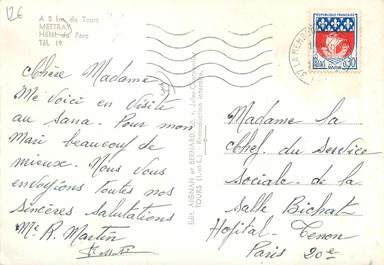 126
A 8 km de Tours
METTRAY
Hôtel du Parc
Tél. 19
Chère Madame
Me voici en visite
au sana. Pour mon
Mari beaucoup de
mieux. Nous vous
envoyions toutes nos
sincères salutations
Me R. Martin
Edit. AIGNAN et BERNARD
TOURS (I.-et-L.) - Reproduction interdite
REPUBLIQUE FRANÇAISE
0,30
Madame la
Chef du service
sociale de la
salle Bichat
Hopital - Tenon
Paris 20e